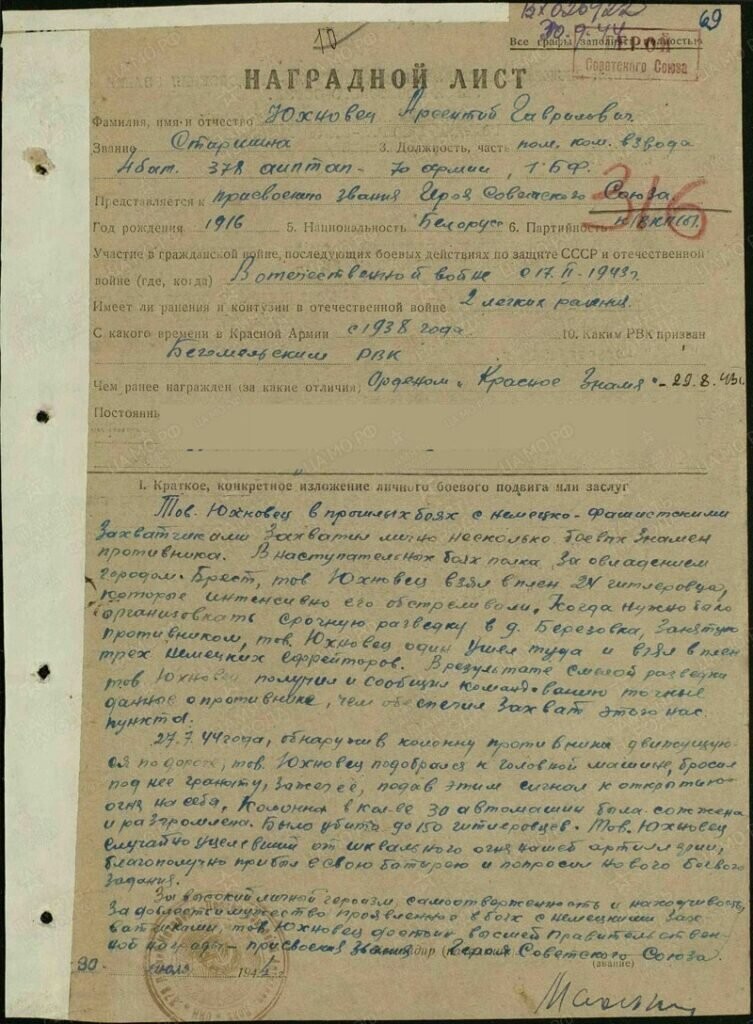 69
30.9.44
10
Все графы заполнять полностью
ГЕРОЙ
Советского Союза
НАГРАДНОЙ ЛИСТ
Фамилия, имя и отчество Юхновец Арсентий Гаврилович
Звание Старшина 3. Должность, часть пом. ком. взвода
4 бат. 378 аиптап - 70 армии, 1 БФ.
Представляется к присвоению звания Героя Советского Союза
316
Год рождения 1916 5. Национальность Белорус 6. Партийность к/ВКП(б).
Участие в гражданской войне, последующих боевых действиях по защите СССР и отечественной
войне (где, когда) В отечественной войне с 17. II - 1943 г.
Имеет ли ранения и контузии в отечественной войне 2 легких ранения.
С какого времени в Красной Армии с 1938 года 10. Каким РВК призван
Бегомельским РВК
Чем ранее награжден (за какие отличия) Орденом "Красное Знамя" - 29.8.43г.
Постоянн
I. Краткое, конкретное изложение личного боевого подвига или заслуг
Тов. Юхновец в прошлых боях с немецко-фашистскими
захватчиками захватил лично несколько боевых знамен
противника. В наступательных боях полка за овладением
городом Брест, тов Юхновец взял в плен 24 гитлеровца,
которые интенсивно его обстреливали. Когда нужно было
организовать срочную разведку в д. Березовка, занятую
противником, тов. Юхновец один ушел туда и взял в плен
трех немецких ефрейторов. В результате смелой разведки
тов Юхновец получил и сообщил командованию точные
данные о противнике, чем обеспечил захват этого нас.
пункта.
27.7.44 года, обнаружив колонну противника движущую-
ся по дороге, тов. Юхновец подобрался к головной машине, бросил
под нее гранату, зажег её, подав этим сигнал к открытию
огня на себя. Колонна в кол-ве 30 автомашин была сожжена
и разгромлена. Было убито до 150 гитлеровцев. Тов. Юхновец
случайно уцелевший от шквального огня нашей артиллерии,
благополучно прибыл в свою батарею и попросил нового боевого
задания.
За высокий личный героизм, самоотверженность и находчивость,
за доблесть и мужество проявленное в боях с немецкими зах-
ватчиками, тов. Юхновец достоин высшей Правительствен-
ной награды - присвоения звания Героя Советского Союза.
(звание)
30 июля 194